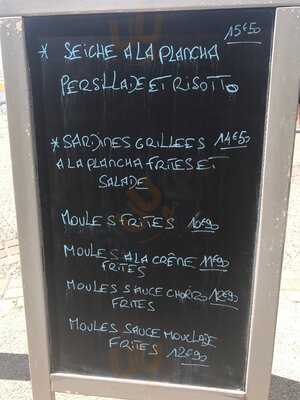 15€50
* SEICHE A LA PLANCHA
PERSILLADE ET RISOTTO
* SARDINES GRILLEES 14€50
A LA PLANCHA FRITES ET
SALADE
MOULES FRITES 10€90
MOULES A LA CRÊME 11€90
FRITES
MOULES SAUCE CHORIZO 12€90
FRITES
MOULES SAUCE MOUCLADE
FRITES 12€90